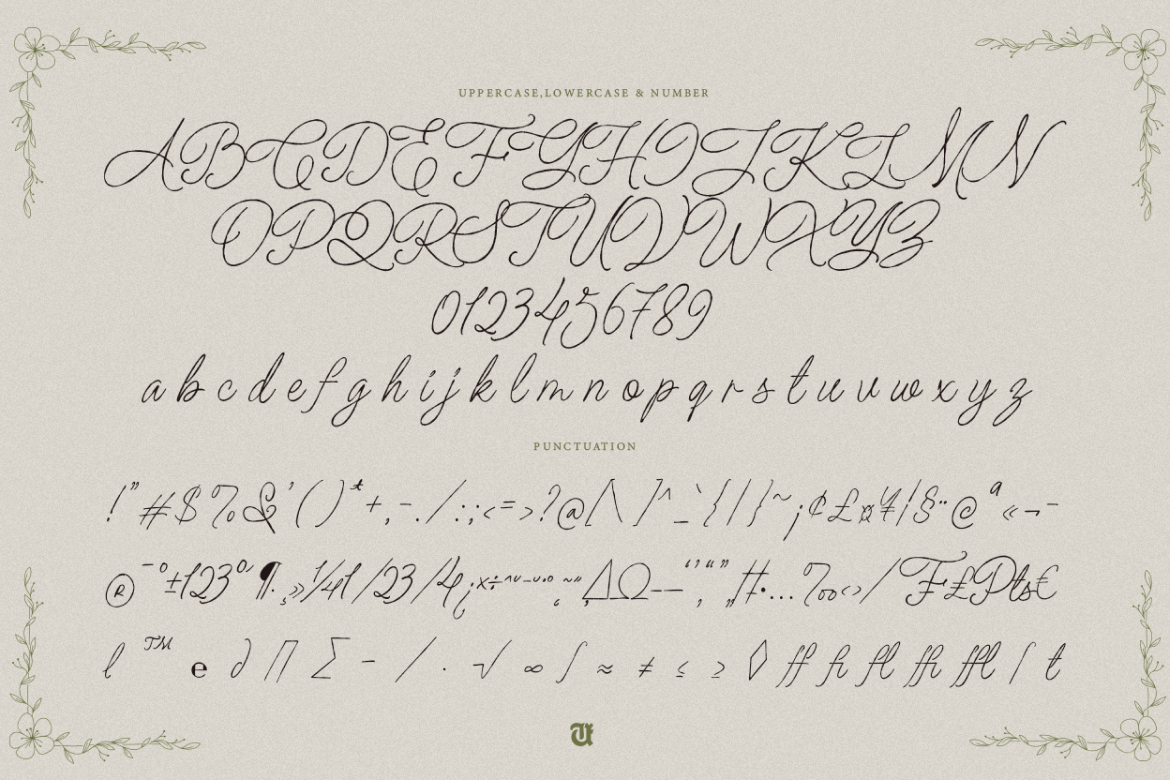 UPPERCASE,LOWERCASE & NUMBER
ABCDEFGHIJKLMN
OPQRSTUVWXYZ
0123456789
a b c d e f g h i j k l m n o p q r s t u v w x y z
PUNCTUATION
! " # $ % & ' ( ) * + , - . / : ; < = > ? @ [ \ ] ^ _ ` { | } ~ ¡ ¢ £ ¤ ¥ ¦ § ¨ © ª « ¬ -
® ¯ ° ± ² ³ º ¶ · ¸ » ¼ ½ ¾ ¿ × ÷ ˆ ˇ ˘ ˙ ˚ ˛ ˜ ˝ ∆ Ω – — ‘ ’ ‚ “ ” „ ‡ • … ‰ ‹ › ⁄ ₣ ₤ ₧ €
ℓ ™ ℮ ∂ ∏ ∑ − ∕ ∙ √ ∞ ∫ ≈ ≠ ≤ ≥ ◊ ff fi fl ffi ffl ſ t
U